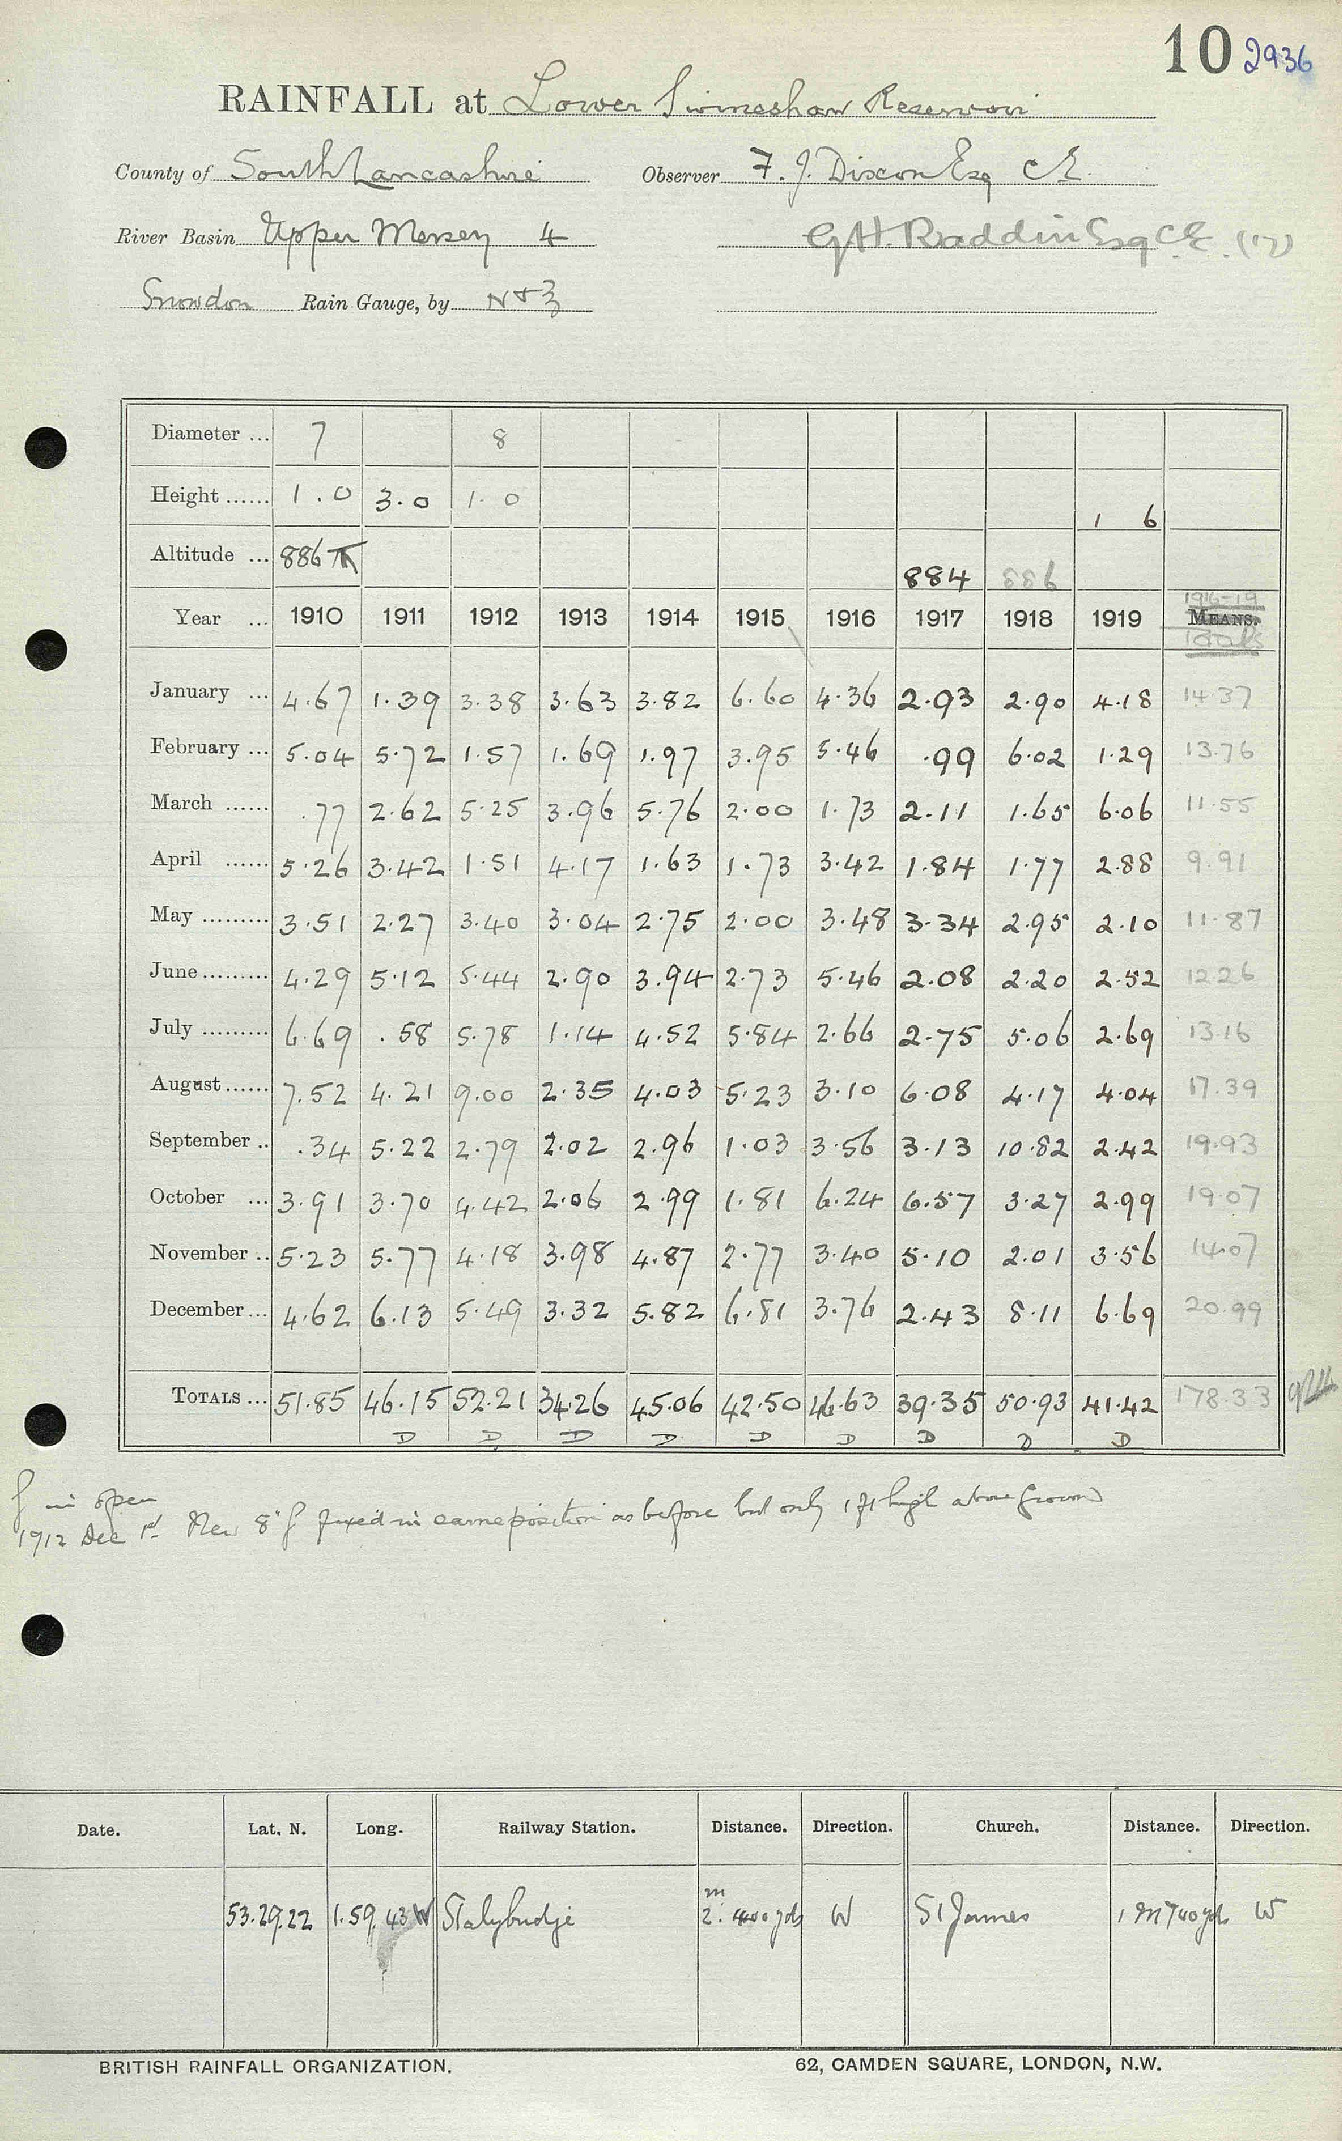 10 2936
RAINFALL at Lower Swineshaw Reservoir
County of South Lancashire Observer F. J. Dixon Esq C E.
River Basin Upper Mersey 4 G H. Raddin Esq C.E. (17)
Snowdon Rain Gauge, by N & Z
Diameter ... 7 8
Height ...... 1.0 3.0 1.0 1 6
Altitude ... 886 884 886
Year ... 1910 1911 1912 1913 1914 1915 1916 1917 1918 1919 1916-19 MEANS. Totals
January ... 4.67 1.39 3.38 3.63 3.82 6.60 4.36 2.93 2.90 4.18 14.37
February ... 5.04 5.72 1.57 1.69 1.97 3.95 5.46 .99 6.02 1.29 13.76
March ...... .77 2.62 5.25 3.96 5.76 2.00 1.73 2.11 1.65 6.06 11.55
April ...... 5.26 3.42 1.51 4.17 1.63 1.73 3.42 1.84 1.77 2.88 9.91
May ......... 3.51 2.27 3.40 3.04 2.75 2.00 3.48 3.34 2.95 2.10 11.87
June ......... 4.29 5.12 5.44 2.90 3.94 2.73 5.46 2.08 2.20 2.52 12.26
July ......... 6.69 .58 5.78 1.14 4.52 5.84 2.66 2.75 5.06 2.69 13.16
August ...... 7.52 4.21 9.00 2.35 4.03 5.23 3.10 6.08 4.17 4.04 17.39
September .. .34 5.22 2.79 2.02 2.96 1.03 3.56 3.13 10.82 2.42 19.93
October ... 3.91 3.70 4.42 2.06 2.99 1.81 6.24 6.57 3.27 2.99 19.07
November .. 5.23 5.77 4.18 3.98 4.87 2.77 3.40 5.10 2.01 3.56 14.07
December ... 4.62 6.13 5.49 3.32 5.82 6.81 3.76 2.43 8.11 6.69 20.99
TOTALS ... 51.85 46.15 52.21 34.26 45.06 42.50 46.63 39.35 50.93 41.42 178.33
D D D D D D D D D
g in open
1912 Dec 1st New 8" g fixed in same position as before but only 1 ft high above ground
Date. Lat. N. Long. Railway Station. Distance. Direction. Church. Distance. Direction.
53.29.22 1.59.43 W Stalybridge 2 m 400 yds W St James 1 m 700 yds W
BRITISH RAINFALL ORGANIZATION. 62, CAMDEN SQUARE, LONDON, N.W.